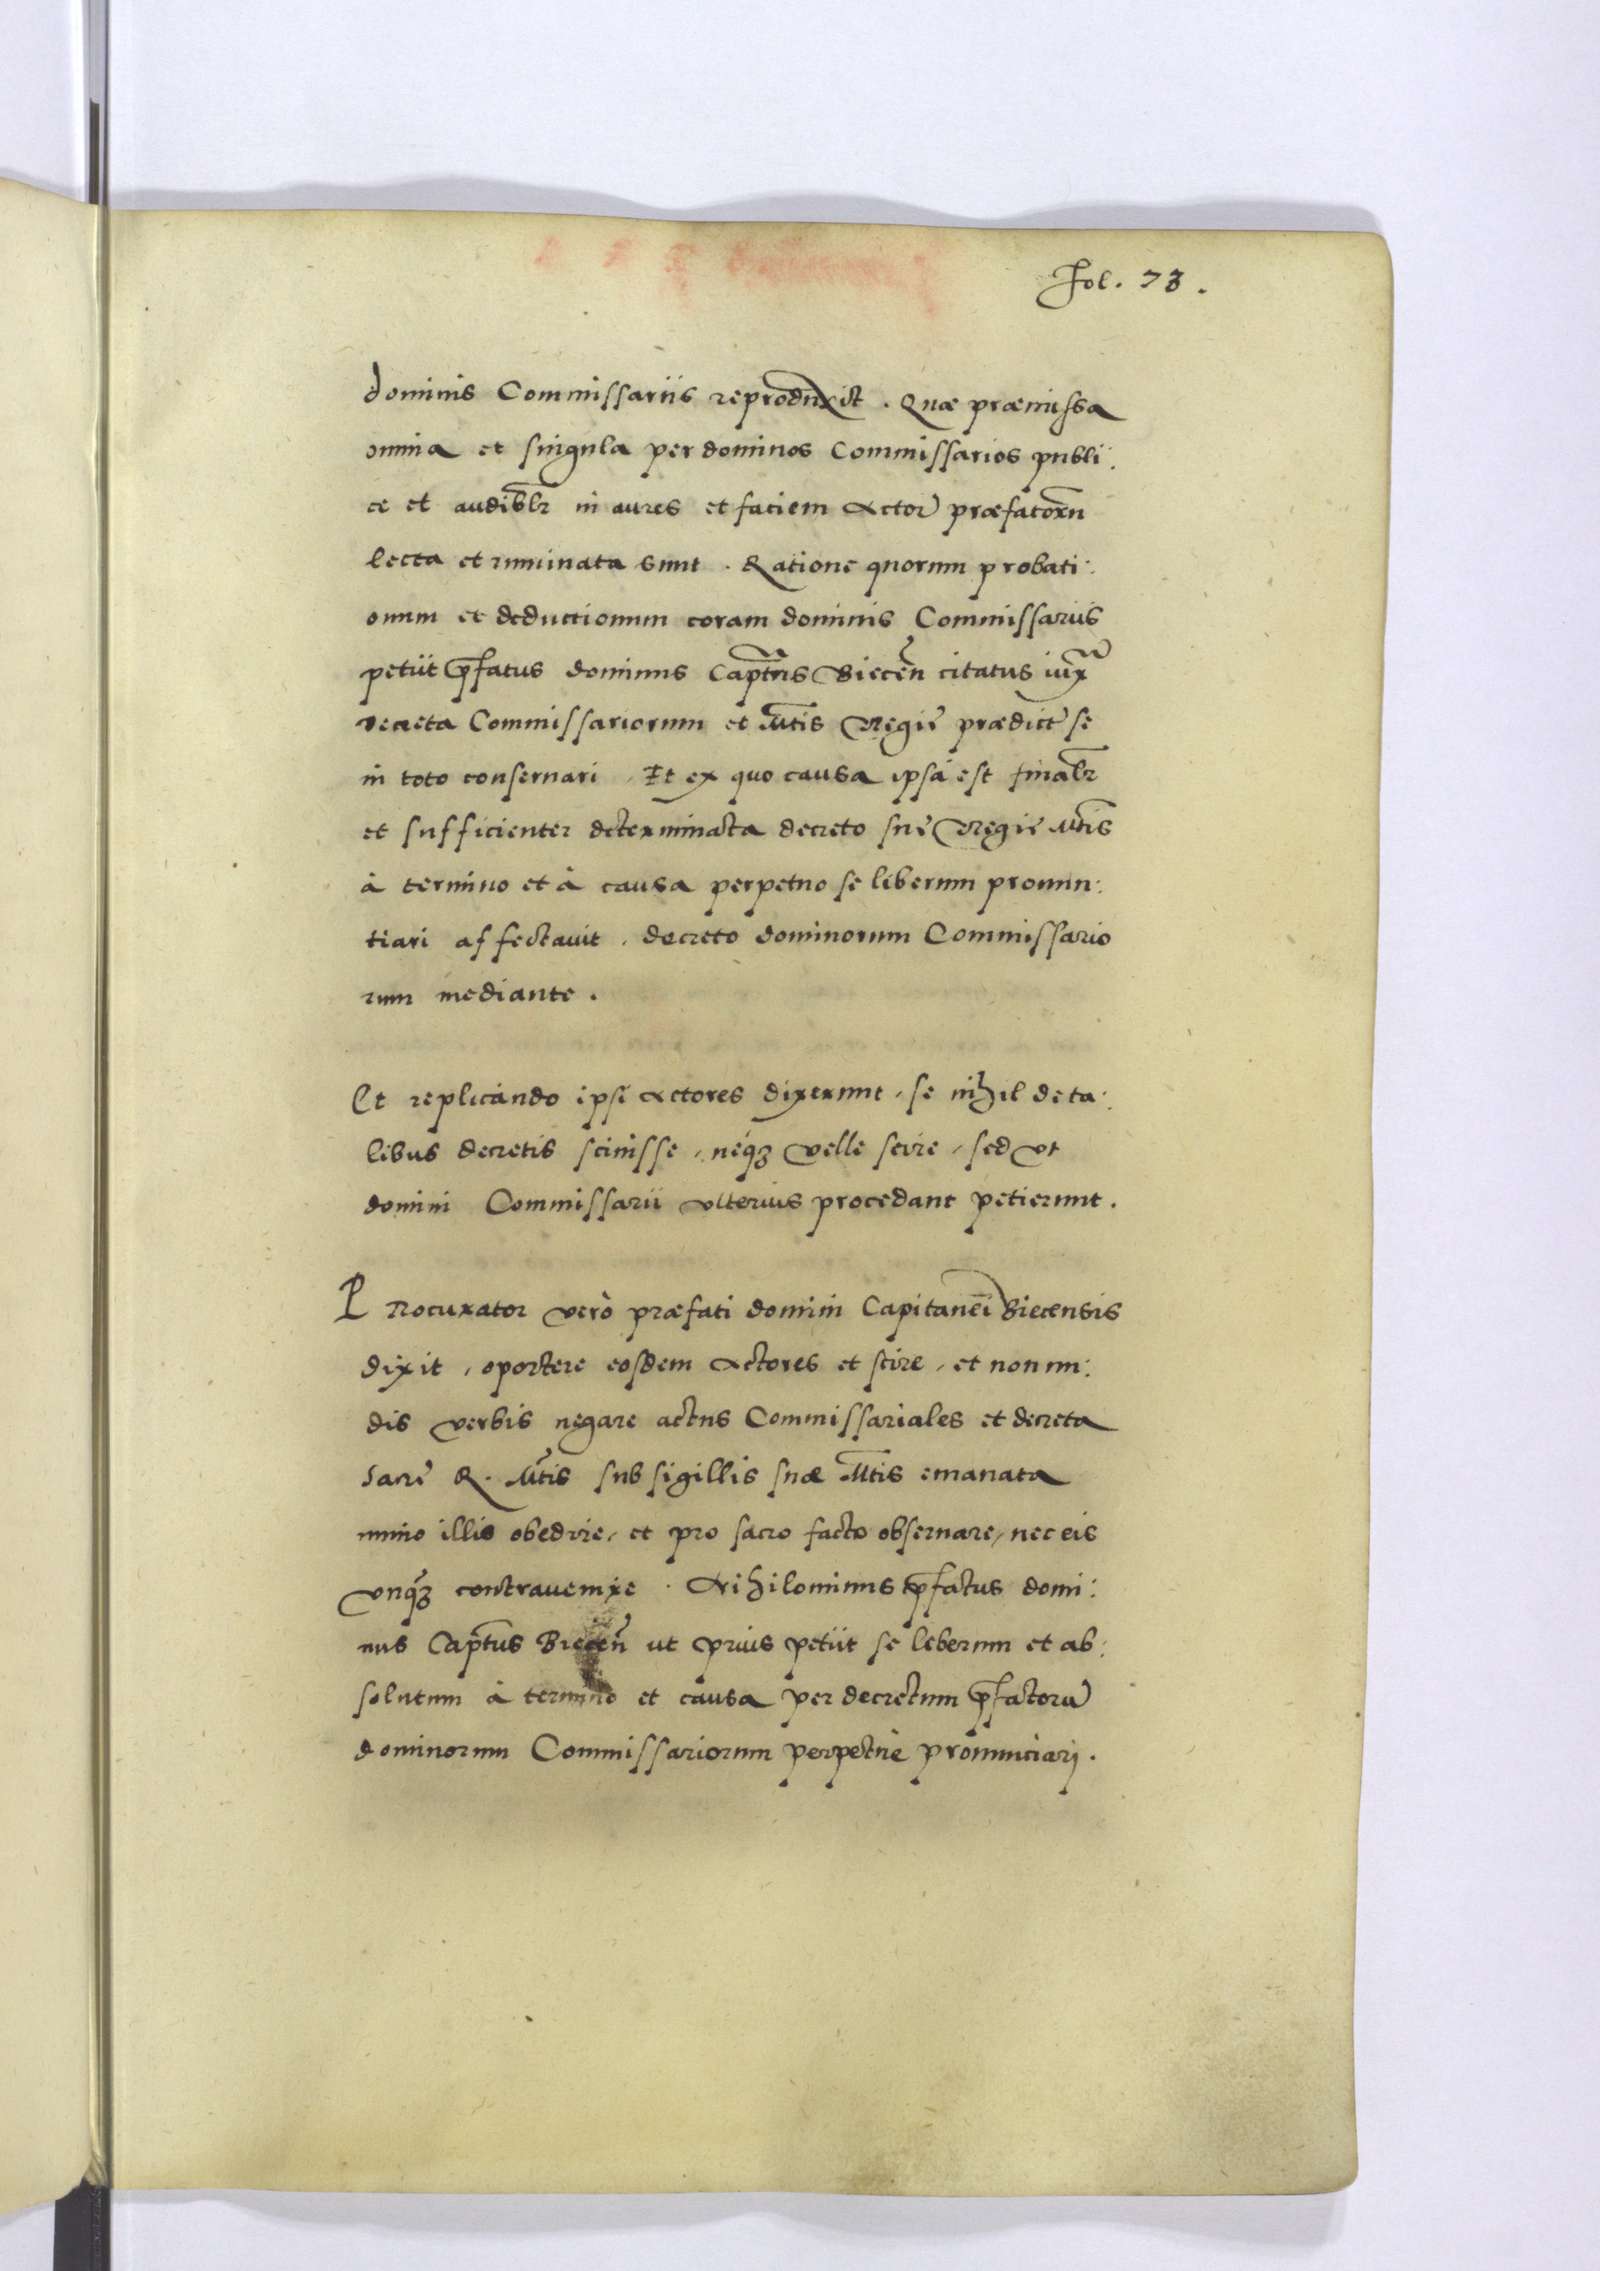 Fol. 73.
dominis Commissariis reproduxit. Quæ præmissa
omnia et singula per dominos Commissarios publi:
ce et audiblr in aures et faciem Actor præfatorũ
lecta et ruminata sunt. Ratione quorum probati:
onum et deductionum coram dominis Commissariis
petiit p̃fatus dominus Capt̃us Biecen̄ citatus iuxᵃ
decreta Commissariorum et M̃tis Regię prædict se
in toto conseruari. Et ex quo causa ipsa est finalr
et sufficienter determinata decreto suę Regię M̃tis
à termino et à causa perpetuo se liberum pronun:
tiari affectauit. decreto dominorum Commissario
rum mediante.
Et replicando ipsi Actores dixerunt, se nihil de ta:
libus decretis sciuisse, néq3 velle scire, sed vt
domini Commissarii vlterius procedant petierunt.
Procurator verò præfati domini Capitanei Biecensis
dixit, oportere eosdem Actores et scire, et non nu:
dis verbis negare actus Commissariales et decreta
Sacrę R. M̃tis sub sigillis suæ M̃tis emanata
immo illis obedire, et pro sacro facto obseruare, nec eis
vnq̃3 contrauenire. Nihilominus p̃fatus domi:
nus Capt̃us Biecen̄ ut prius petiit se liberum et ab:
solutum à termino et causa per decretum p̃factorũ
dominorum Commissariorum perpetuè pronunciari.